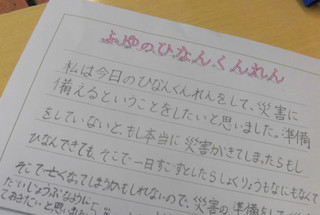 ふゆのひなんくんれん
私は今日のひなんくんれんをして、災害に
備えるということをしたいと思いました。準備
をしていないと、もし本当に災害がきてしまったらもし
ひなんできても、そこで一日すごすとしたらしょくりょうもなにもなくて
そこで亡くなってしまうかもしれないので、災害の準備をして
だいじょうぶなように
ておきたいと思いました。